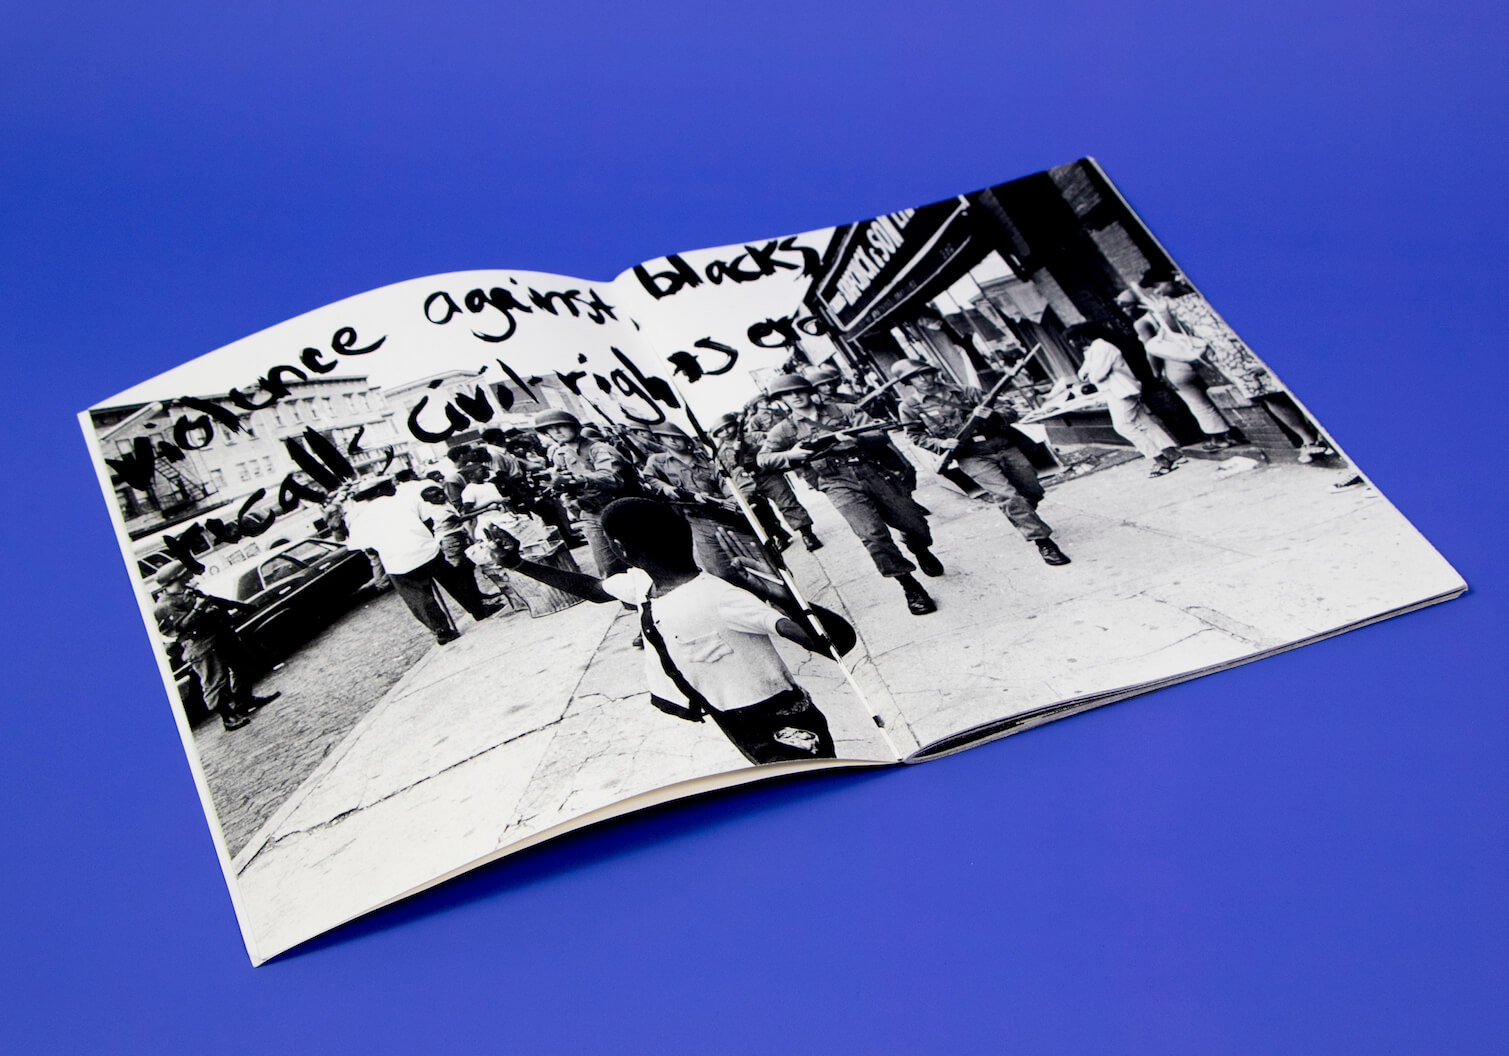 violence against blacks
recalls civil-rights era
& SON